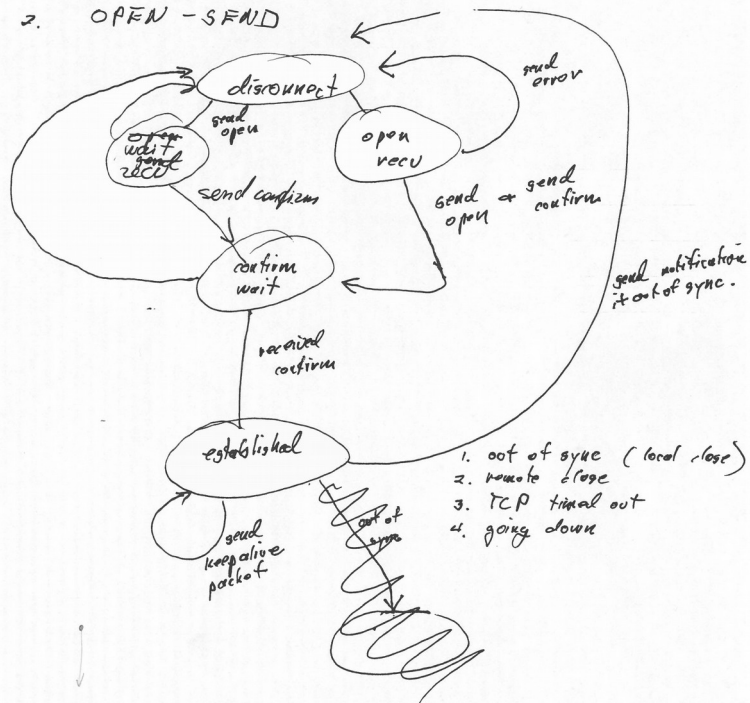 2. OPEN - SEND
disconnect
send
error
send
open
open
wait
send
recv
open
recv
send confirm
send
open or send
confirm
confirm
wait
send notification
if out of sync.
received
confirm
established
1. out of sync (local close)
2. remote close
3. TCP timed out
4. going down
out of
sync
send
keepalive
packet